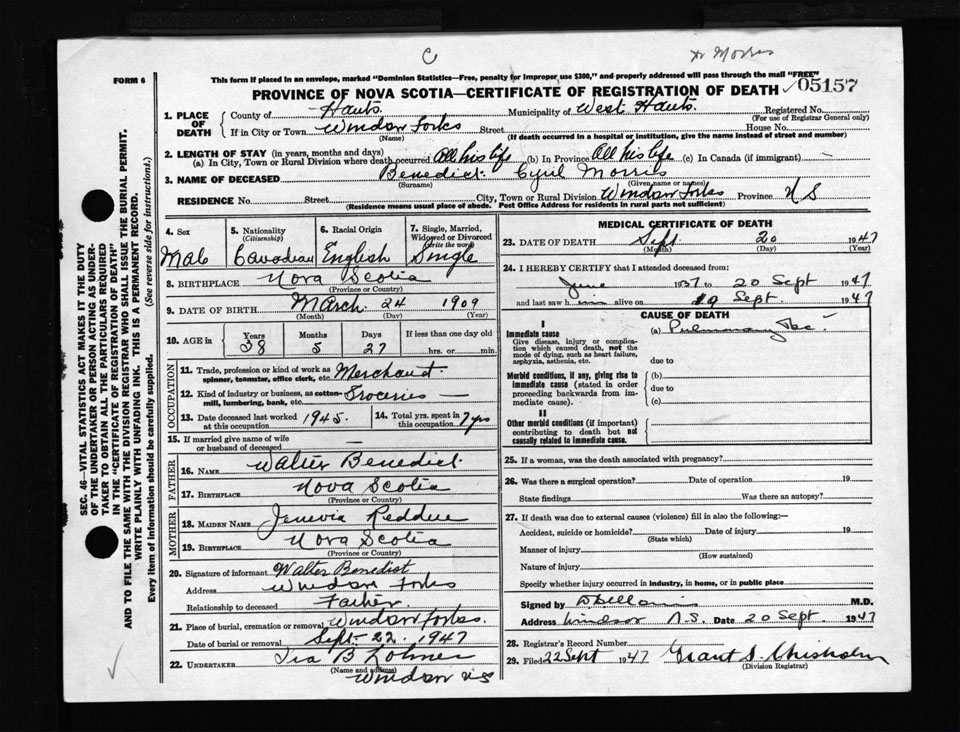 C
Dr Morris
FORM 6
This form if placed in an envelope, marked "Dominion Statistics—Free, penalty for improper use $300," and properly addressed will pass through the mail "FREE"
PROVINCE OF NOVA SCOTIA—CERTIFICATE OF REGISTRATION OF DEATH
05157
1. PLACE OF DEATH
County of Hants Municipality of West Hants Registered No.
(For use of Registrar General only)
If in City or Town Windsor Forks Street House No.
(Name) (If death occurred in a hospital or institution, give the name instead of street and number)
2. LENGTH OF STAY (in years, months and days)
(a) In City, Town or Rural Division where death occurred All his life (b) In Province All his life (c) In Canada (if immigrant) —
3. NAME OF DECEASED Benedict Cyril Morris
(Surname) (Given name or names)
RESIDENCE No. Street City, Town or Rural Division Windsor Forks Province N S
(Residence means usual place of abode. Post Office Address for residents in rural parts not sufficient)
4. Sex Male
5. Nationality (Citizenship) Canadian
6. Racial Origin English
7. Single, Married, Widowed or Divorced (write the word) Single
8. BIRTHPLACE Nova Scotia
(Province or Country)
9. DATE OF BIRTH March 24 1909
(Month) (Day) (Year)
10. AGE in Years Months Days If less than one day old
38 5 27 hrs. or min.
OCCUPATION
11. Trade, profession or kind of work as spinner, teamster, office clerk, etc. Merchant
12. Kind of industry or business, as cotton-mill, lumbering, bank, etc. Groceries —
13. Date deceased last worked at this occupation 1945.
14. Total yrs. spent in this occupation 7 yrs
15. If married give name of wife or husband of deceased —
FATHER
16. NAME Walter Benedict
17. BIRTHPLACE Nova Scotia
(Province or Country)
MOTHER
18. MAIDEN NAME Jenevia
19. BIRTHPLACE Nova Scotia
(Province or Country)
20. Signature of informant Walter Benedict
Address Windsor Forks
Relationship to deceased Father.
21. Place of burial, cremation or removal Windsor Forks.
Date of burial or removal Sept. 22. 1947
22. UNDERTAKER Ira B
(Name and address)
Windsor N S
MEDICAL CERTIFICATE OF DEATH
23. DATE OF DEATH Sept. 20 1947
(Month) (Day) (Year)
24. I HEREBY CERTIFY that I attended deceased from:
June 1937 to 20 Sept 1947
and last saw him alive on 19 Sept. 1947
CAUSE OF DEATH
I
Immediate cause
Give disease, injury or complication which caused death, not the mode of dying, such as heart failure, asphyxia, asthenia, etc.
(a) Pulmonary Tbc
due to
Morbid conditions, if any, giving rise to immediate cause (stated in order proceeding backwards from immediate cause).
(b)
due to
(c)
II
Other morbid conditions (if important) contributing to death but not causally related to immediate cause.
25. If a woman, was the death associated with pregnancy?
26. Was there a surgical operation? Date of operation 19
State findings Was there an autopsy?
27. If death was due to external causes (violence) fill in also the following:—
Accident, suicide or homicide? Date of injury 19
(State which)
Manner of injury
(How sustained)
Nature of injury
Specify whether injury occurred in industry, in home, or in public place
Signed by M.D.
Address Windsor N.S. Date 20 Sept. 1947
28. Registrar's Record Number
29. Filed 22 Sept 1947 Grant S. Chisholm
(Division Registrar)
SEC. 46—VITAL STATISTICS ACT MAKES IT THE DUTY
OF THE UNDERTAKER OR PERSON ACTING AS UNDER-
TAKER TO OBTAIN ALL THE PARTICULARS REQUIRED
IN THE "CERTIFICATE OF REGISTRATION OF DEATH"
AND TO FILE THE SAME WITH THE DIVISION REGISTRAR WHO SHALL ISSUE THE BURIAL PERMIT.
WRITE PLAINLY WITH UNFADING INK. THIS IS A PERMANENT RECORD.
Every item of information should be carefully supplied. (See reverse side for instructions.)